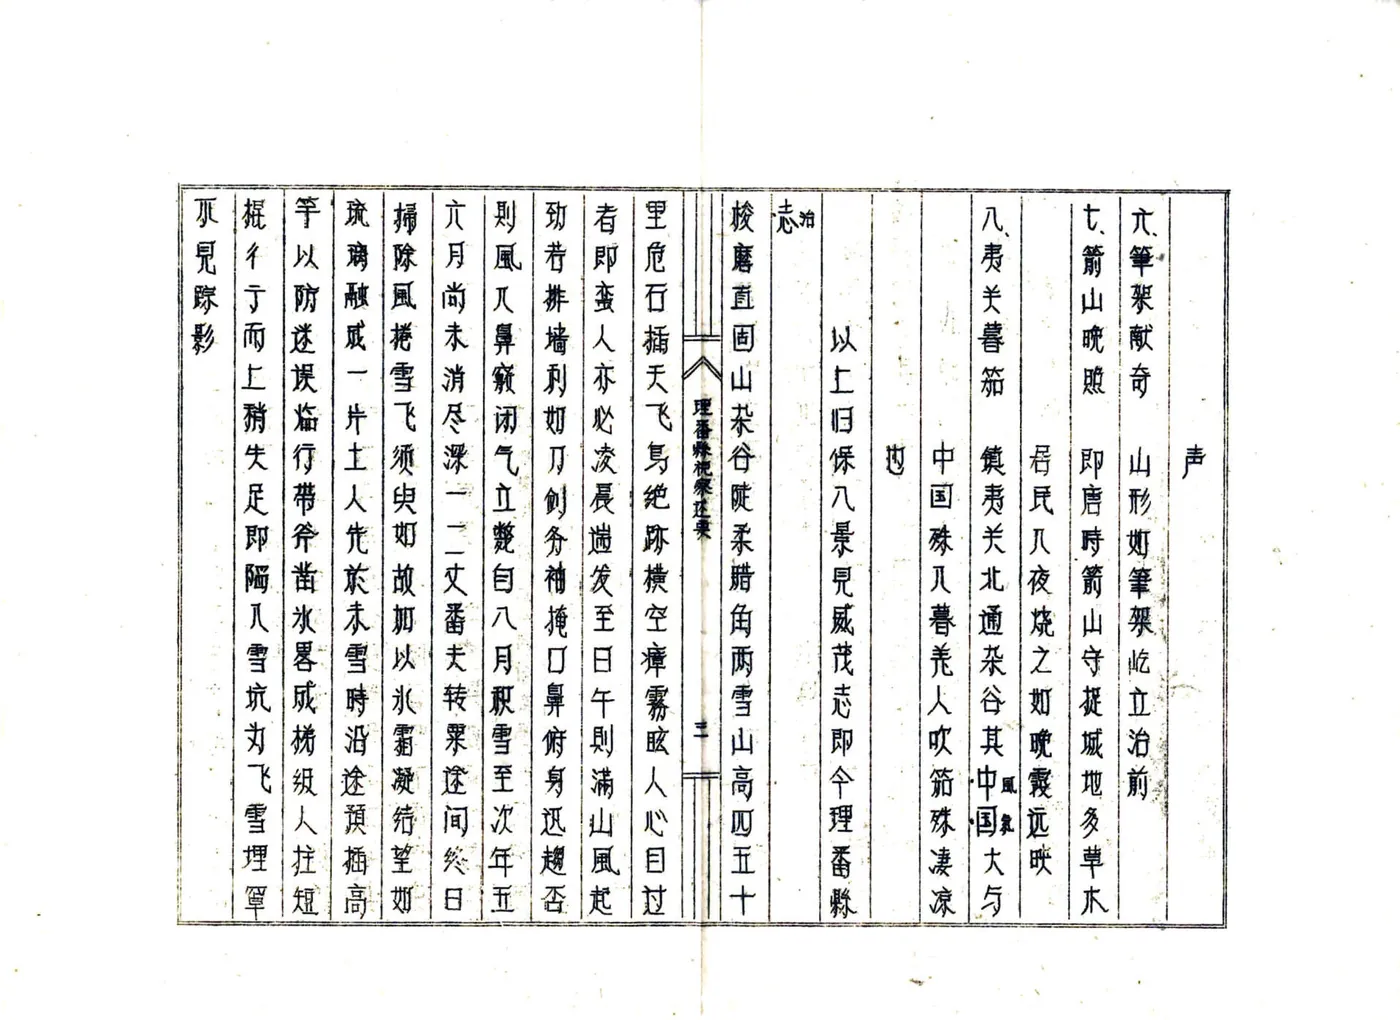 声
六、筆架献奇　山形如筆架屹立治前
七、箭山晚照　即唐時箭山守捉城地多草木
居民入夜烧之如晚霞远映
八、夷关暮笳　鎮夷关北通杂谷其中国大与
風氣
中国殊入暮羌人吹笳殊凄凉
也
以上归保八景見威茂志即今理番縣
志
治
梭磨直固山杂谷陡柔腊角两雪山高四五十
理番縣視察述要
三
里危石插天飞鳥绝跡横空瘴霧眩人心目过
者即蛮人亦必凌晨遄发至日午則滿山風起
劲若排墙利如刀劍务袖掩口鼻俯身迅趨否
則風入鼻竅闭气立斃自八月积雪至次年五
六月尚未消尽深一二丈番夫转粟途间终日
掃除風捲雪飞须臾如故加以氷霜凝结望如
琉璃融成一片土人先於未雪時沿途預插高
竿以防迷误临行带斧凿氷畧成梯级人拄短
棍彳亍而上稍失足即陷入雪坑为飞雪埋罩
不見踪影